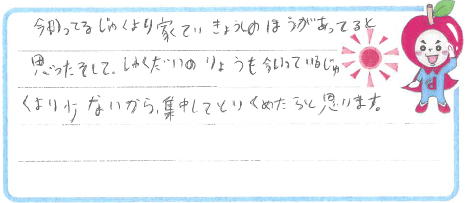 今行ってるじゅくより家ていきょうしのほうがあってると
思ったそして、しゅくだいのりょうも今いっているじゅ
くより少ないから、集中してとりくめたらと思います。
d